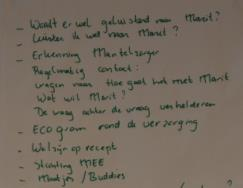 - Wordt er wel geluisterd naar Marit?
- Luister ik wel naar Marit?
- Erkenning Mantelzorger
- Regelmatig contact:
vragen naar Hoe gaat het met Marit
Wat wil Marit?
De vraag achter de vraag verhelderen
- ECOgram rond de verzorging
- Welzijn op recept
- Stichting MEE
- Maatjes / Buddies